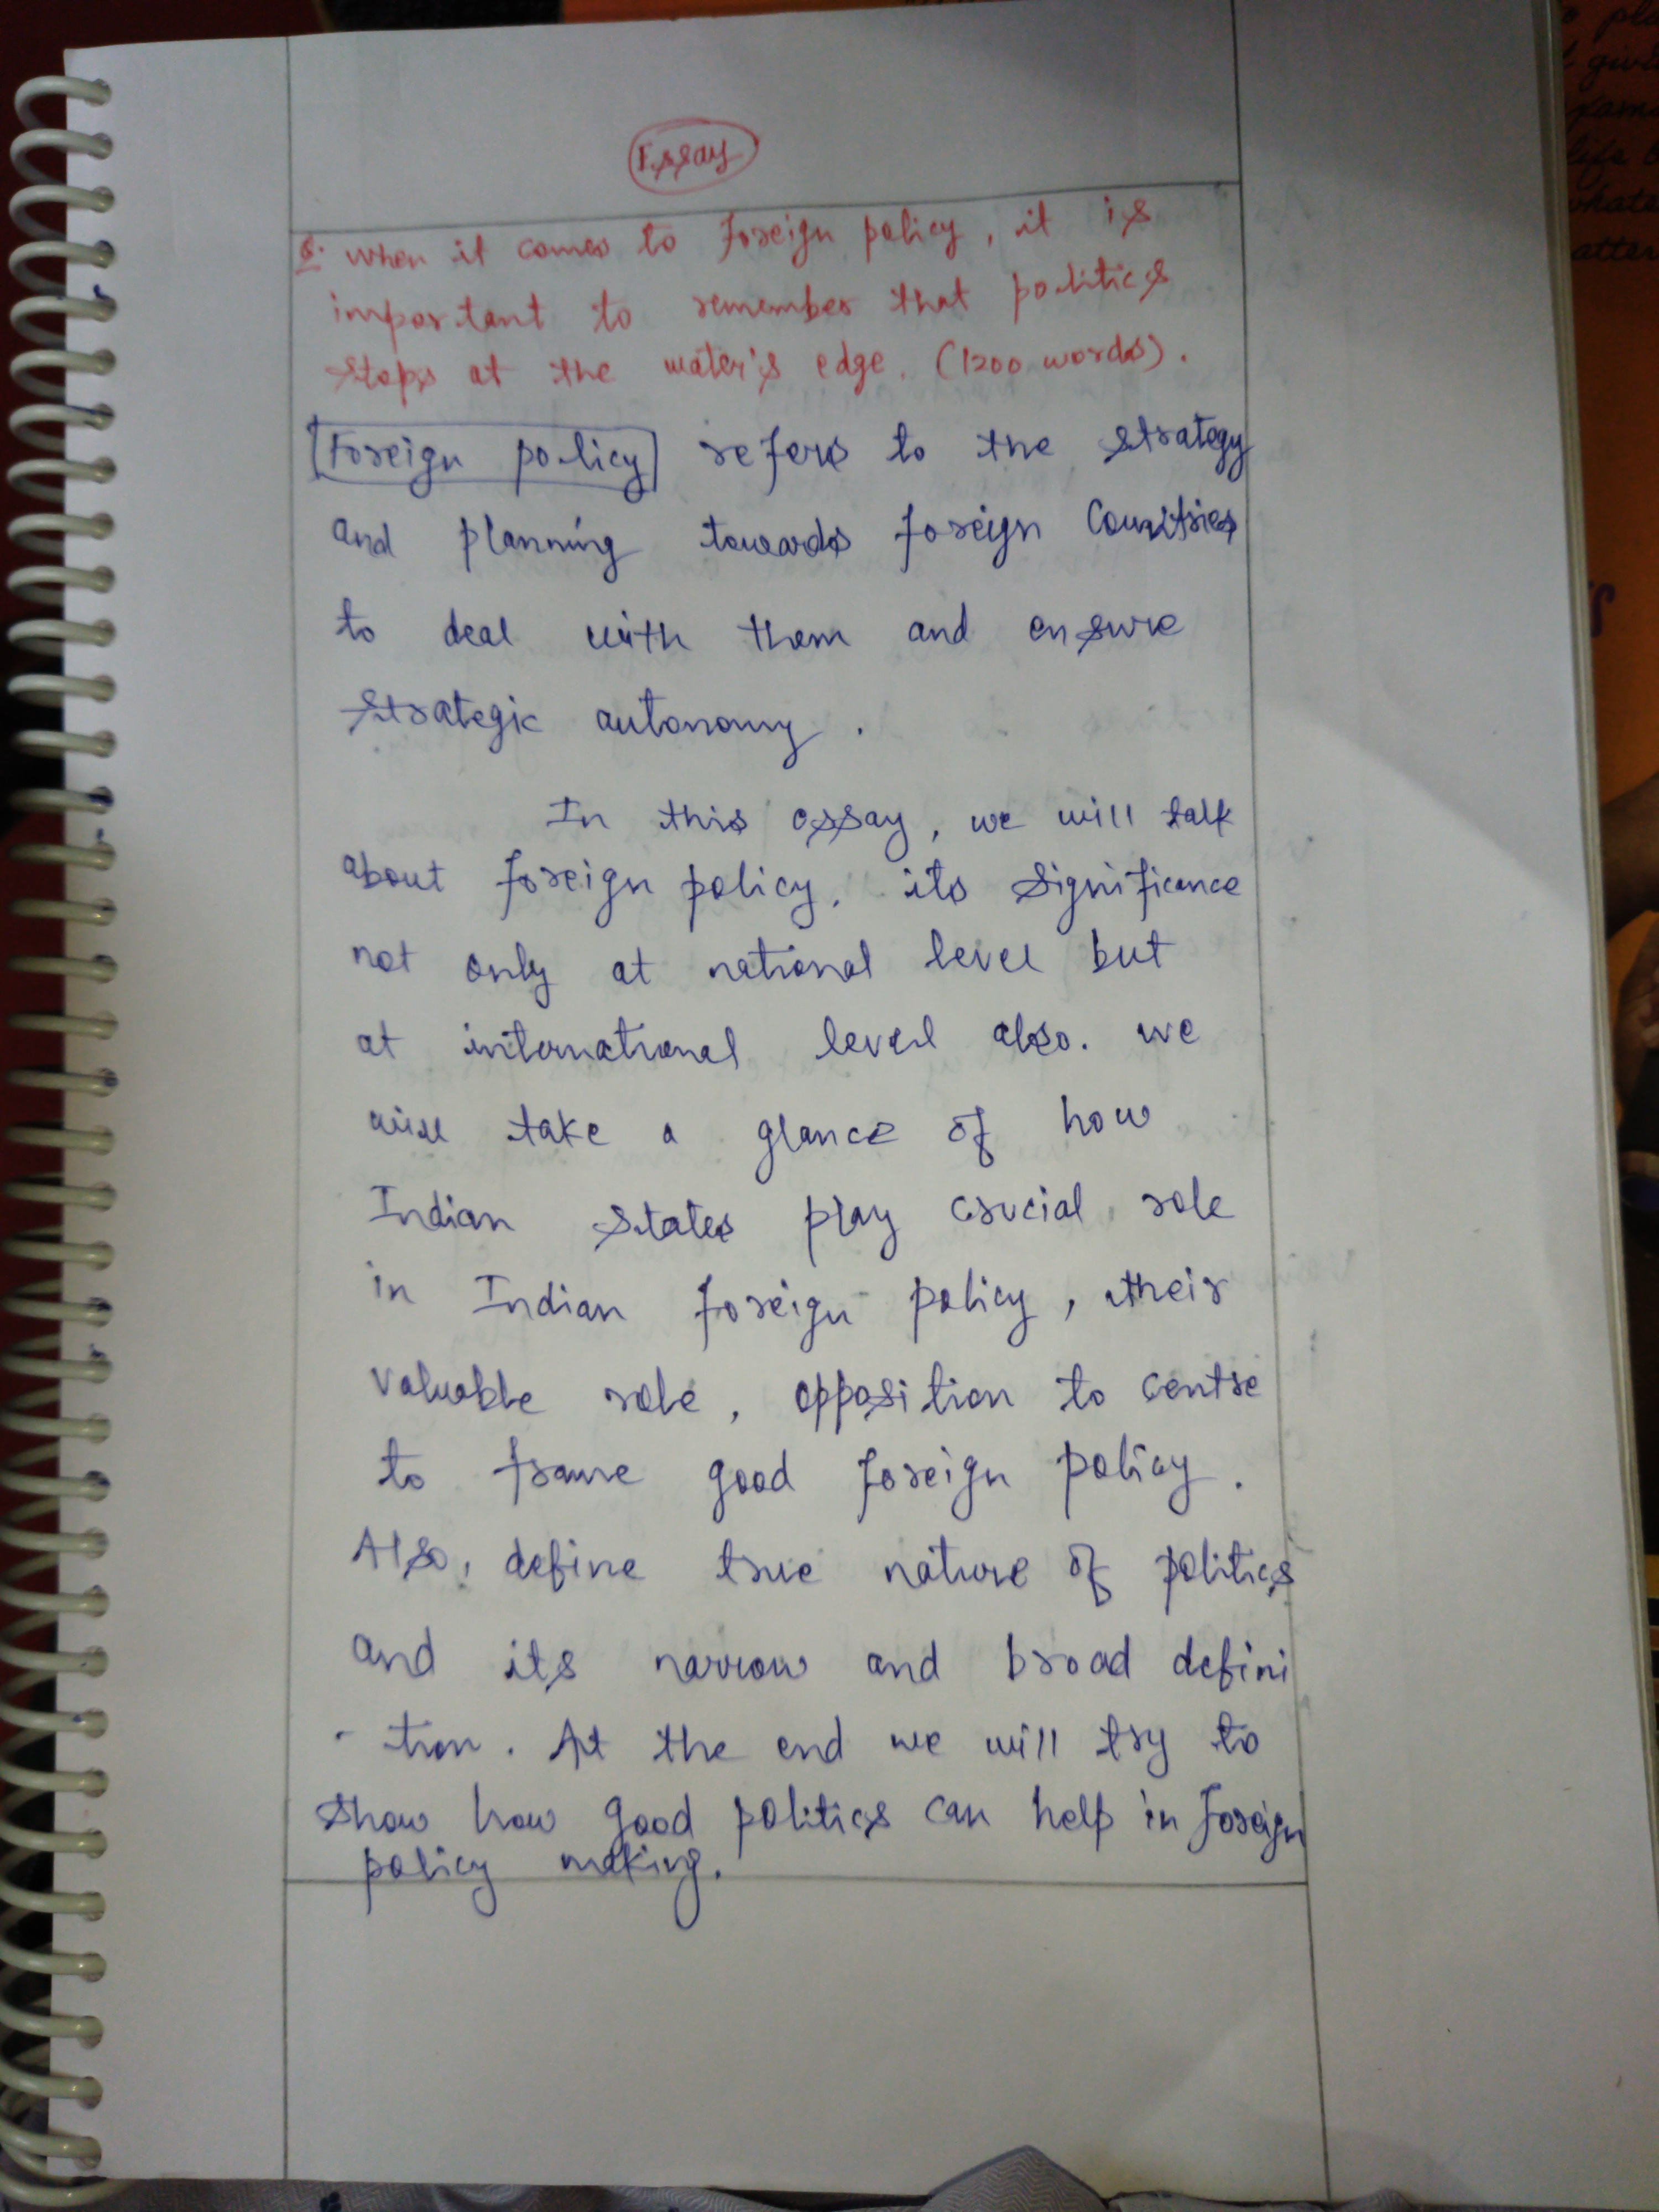 Essay
Q. When it comes to foreign policy, it is
important to remember that politics
stops at the water's edge. (1200 words).
Foreign policy refers to the strategy
and planning towards foreign Countries
to deal with them and ensure
strategic autonomy.
In this essay, we will talk
about foreign policy, its significance
not only at national level but
at international level also. we
will take a glance of how
Indian states play crucial role
in Indian foreign policy, their
valuable role, opposition to centre
to frame good foreign policy.
Also, define true nature of politics
and its narrow and broad defini
- tion. At the end we will try to
show how good politics can help in foreign
policy making.